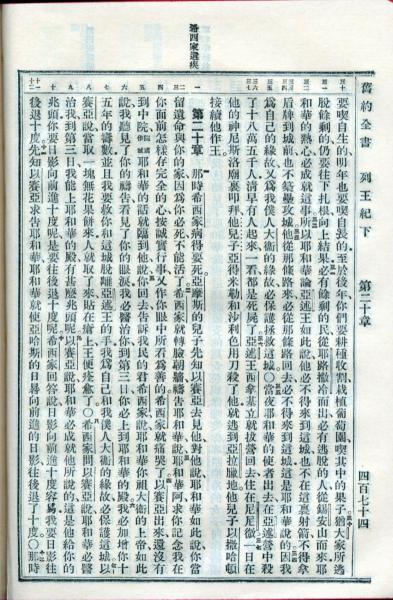 舊約全書 列王紀下 第二十章 四百七十四
要喫自生的明年也要喫自長的至於後年你們要耕種收割栽植葡萄園喫其中的果子猶大家所逃
脫餘剩的仍要往下扎根向上結果必有餘剩的民從耶路撒冷而出必有逃脫的人從錫安山而來耶
和華的熱心必成就這事所以耶和華論亞述王如此說他必不得來到這城也不在這裏射箭不得拿
盾牌到城前也不築壘攻城他從那條路來必從那條路回去必不得來到這城這是耶和華說的因我
爲自己的緣故又爲我僕人大衛的緣故必保護拯救這城〇當夜耶和華的使者出去在亞述營中殺
了十八萬五千人清早有人起來一看都是死屍了亞述王西拿基立就拔營回去住在尼尼微一日在
他的神尼斯洛廟裏叩拜他兒子亞得米勒和沙利色用刀殺了他就逃到亞拉臘地他兒子以撒哈頓
接續他作王
第二十章 那時希西家病得要死亞摩斯的兒子先知以賽亞去見他對他說耶和華如此說你當
留遺命與你的家因爲你必死不能活了希西家就轉臉朝牆禱告耶和華說耶和華阿求你記念我在
你面前怎樣存完全的心按誠實行事又作你眼中所看爲善的希西家就痛哭了以賽亞出來還沒有
到中院耶和華的話就臨到他說你回去告訴我民的君希西家說耶和華你祖大衛的上帝如此
說我聽見了你的禱告看見了你的眼淚我必醫治你到第三日你必上到耶和華的殿我必加增你十
五年的壽數並且我要救你和這城脫離亞述王的手我爲自己和我僕人大衛的緣故必保護這城以
賽亞說當取一塊無花果餅來人就取了來貼在瘡上王便痊癒了〇希西家問以賽亞說耶和華必醫
治我到第三日我能上耶和華的殿有甚麽兆頭呢以賽亞說耶和華必成就他所說的這是他給你的
兆頭你要日影向前進十度呢是要往後退十度呢希西家回答說日影向前進十度容易我要日影往
後退十度先知以賽亞求告耶和華耶和華就使亞哈斯的日晷向前進的日影往後退了十度〇那時